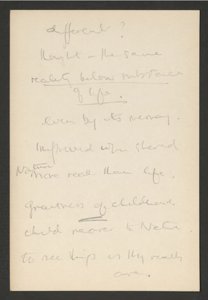 different?
the same
reality below substance
of life.
even by its
shared
Nature more real than life.
Greatness of childhood
child nearer to Nature
to see things as they really
are.